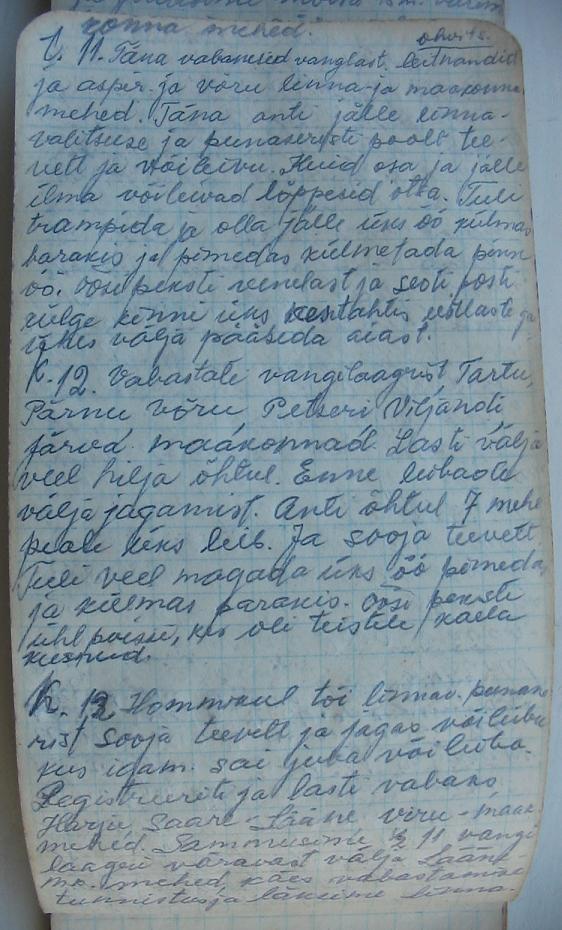 konna mehed.
ohvits.
11. Täna vabanesid vanglast. leitnandid
ja aspir. ja võru linna-ja maakonna
mehed. Täna anti jälle linna-
valitsuse ja punaseristi poolt tee-
vett ja võileibu. Kuid osa ja jälle
ilma võileivad lõppesid otsa. Tuli
trampida ja olla jälle üks öö külmas
barakis ja pimedas külmetada
öö. öösi peksti venelast ja seoti posti
külge kinni üks kes tahtis
välja pääseda aiast.
K. 12. Vabastati vangilaagrist Tartu,
Pärnu Võru Petseri Viljandi
Järva maakonnad. Lasti välja
veel hilja õhtul. Enne leibade
välja jagamist. Anti õhtul 7 mehe
peale üks leib. Ja sooja teevett
Tuli veel magada üks öö pimedas
ja külmas parakis. öösi peksti
ühl poissi, kes oli teistele kaela
K. 13 Hommikul tõi linnav. punane
rist sooja teevett ja jagas võileibu
kus igam. sai juba võileiba.
Registreeriti ja lasti vabaks
Harju Saare-Lääne viru-maak.
mehed. Sammusime 11 vangi
laagri väravast välja Lääne
mk. mehed, käes vabastamise
tunnistus ja läksime linna.